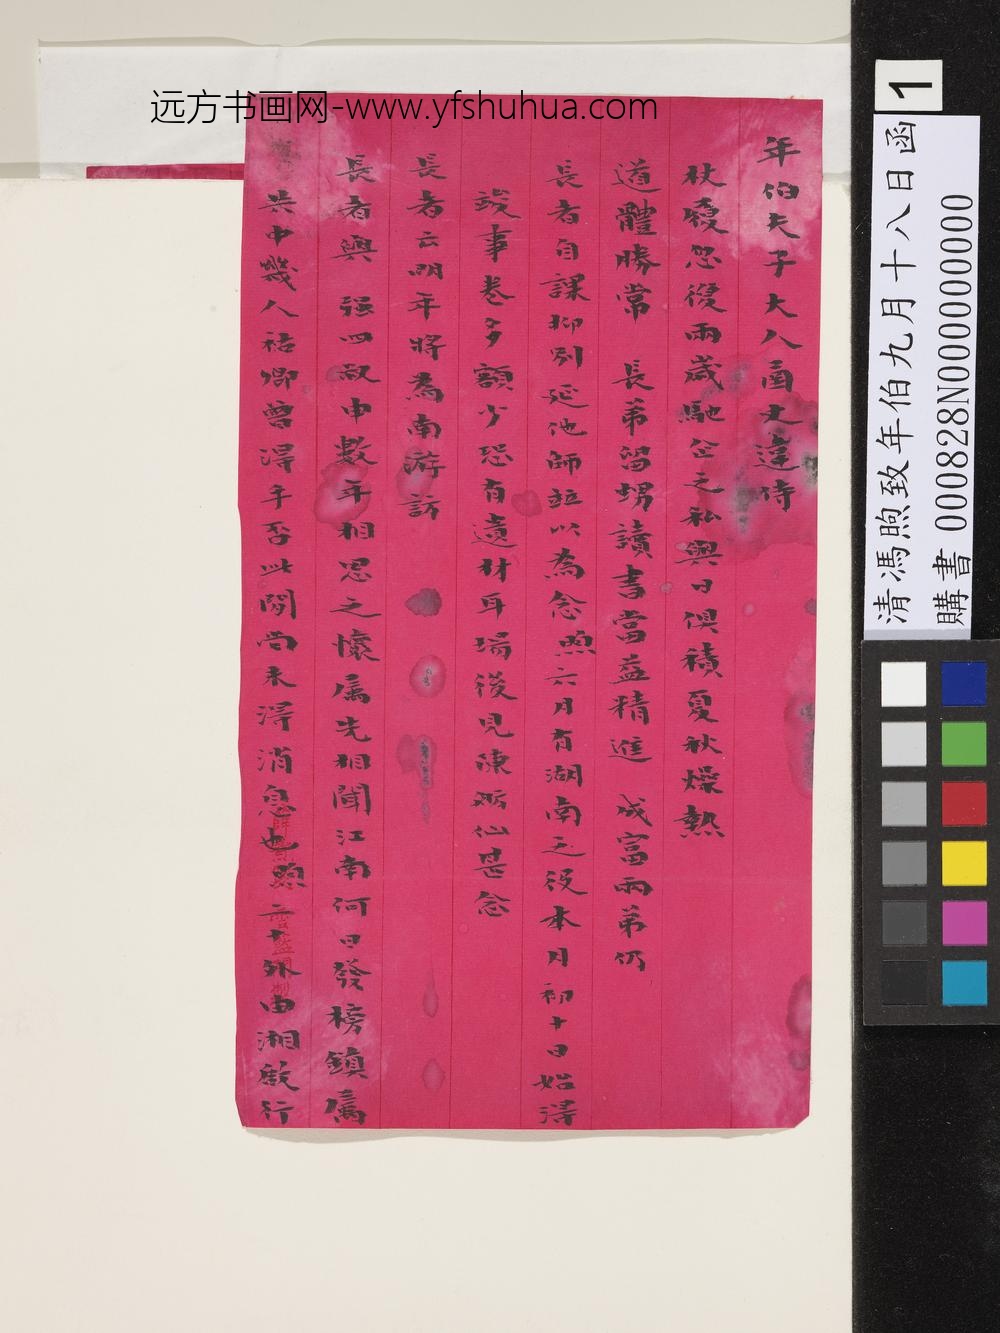 远方书画网-www.yfshuhua.com
年伯夫子大人函丈違侍
杖履忽復兩歲馳企之私與日俱積夏秋燥熱
道體勝常 長弟留甥讀書當益精進 成富兩弟仍
長者自課抑別延他師並以為念煦六月有湖南之役本月初十日始得
竣事卷多額少恐有遺材耳場後見陳
仙甚念
長者云明年將為南游訪
長者與 強四叔申數年相思之懷屬先相聞江南何日發榜鎮屬
共中幾人祐卿曾得手否此間尚未得消息也煦
外由湘啟行
1
清馮煦致年伯九月十八日函
購書 000828N000000000